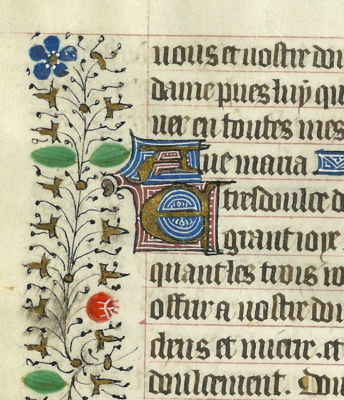 vous et vostre dou
dame pues luy qu
ver en toutes mes
Ave maria
E tresdoulce d
grant ioye
quant les trois ro
offrir a vostre dou
chiers et
doulcement. Dou